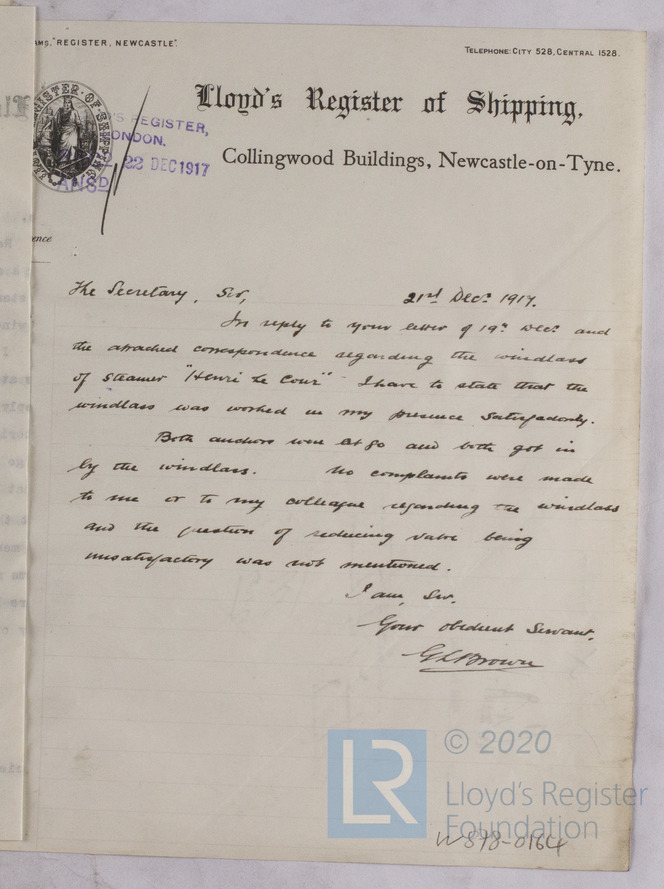 AMS, "REGISTER, NEWCASTLE".
TELEPHONE: CITY 528, CENTRAL 1528.
Lloyd's Register of Shipping,
Collingwood Buildings, Newcastle-on-Tyne.
'S REGISTER,
ONDON.
22 DEC 1917
ANSD
ence
The Secretary, Sir, 21st Decr. 1917.
In reply to your letter of 19th Decr and
the attached correspondence regarding the windlass
of Steamer "Henri Le Cour" I have to state that the
windlass was worked in my presence Satisfactorily.
Both anchors were let go and both got in
by the windlass. No complaints were made
to me or to my colleague regarding the windlass
and the question of reducing valve being
unsatisfactory was not mentioned.
I am, Sir,
Your obedient Servant,
G L Brown
LR
© 2020
Lloyd's Register
Foundation
W578-0164